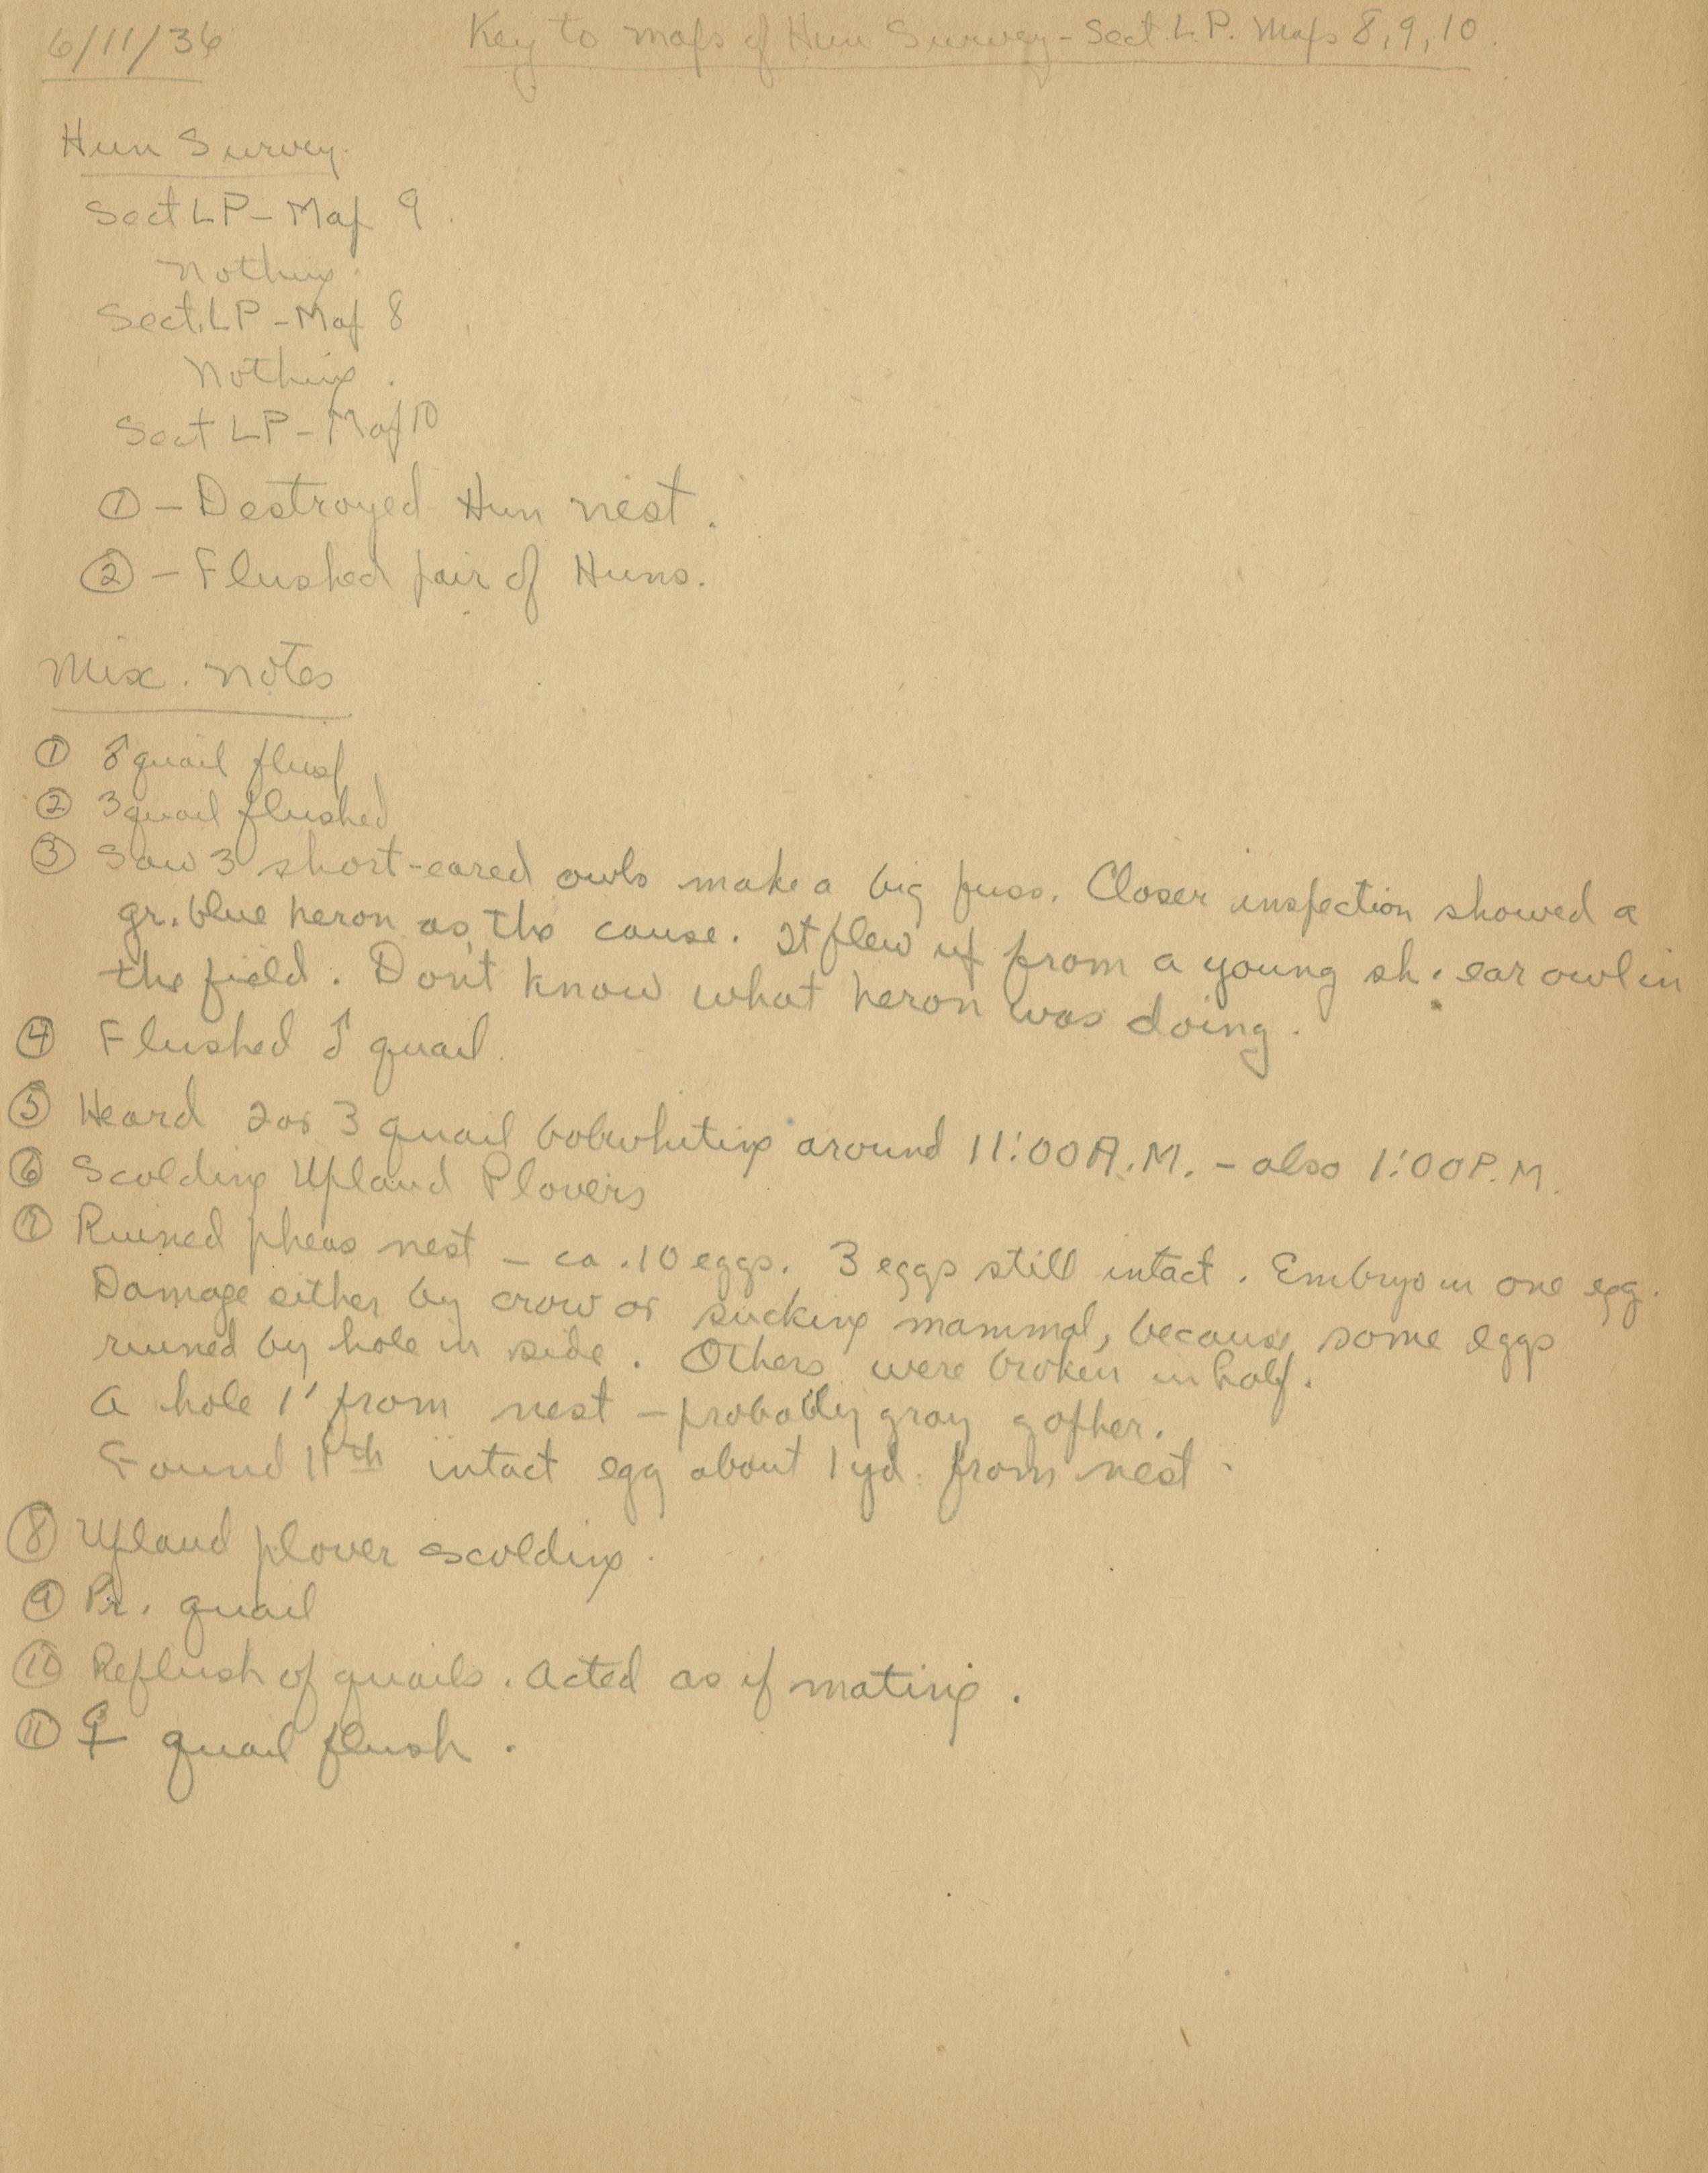 6/11/36
Key to maps of Hun Survey - Sect. L.P. Maps 8, 9, 10.
Hun Survey.
Sect LP - Map 9.
Nothing.
Sect. LP - Map 8
Nothing.
Sect LP - Map 10
① - Destroyed Hun nest.
② - Flushed pair of Huns.
Misc. notes
① ♂ quail flush
② 3 quail flushed
③ Saw 3 short-eared owls make a big fuss. Closer inspection showed a
gr. blue heron as the cause. It flew up from a young sh. ear owl in
the field. Don't know what heron was doing.
④ Flushed ♂ quail.
⑤ Heard 2 or 3 quail bobwhiting around 11:00 A.M. - also 1:00 P.M.
⑥ Scolding Upland Plovers
⑦ Ruined pheas nest - ca. 10 eggs. 3 eggs still intact. Embryo in one egg.
Damage either by crow or sucking mammal, because some eggs
ruined by hole in side. Others were broken in half.
A hole 1' from nest - probably gray gopher.
Found 11th intact egg about 1 yd. from nest.
⑧ Upland plover scolding.
⑨ Pr. quail
⑩ Reflush of quails. Acted as if mating.
⑪ ♀ quail flush.